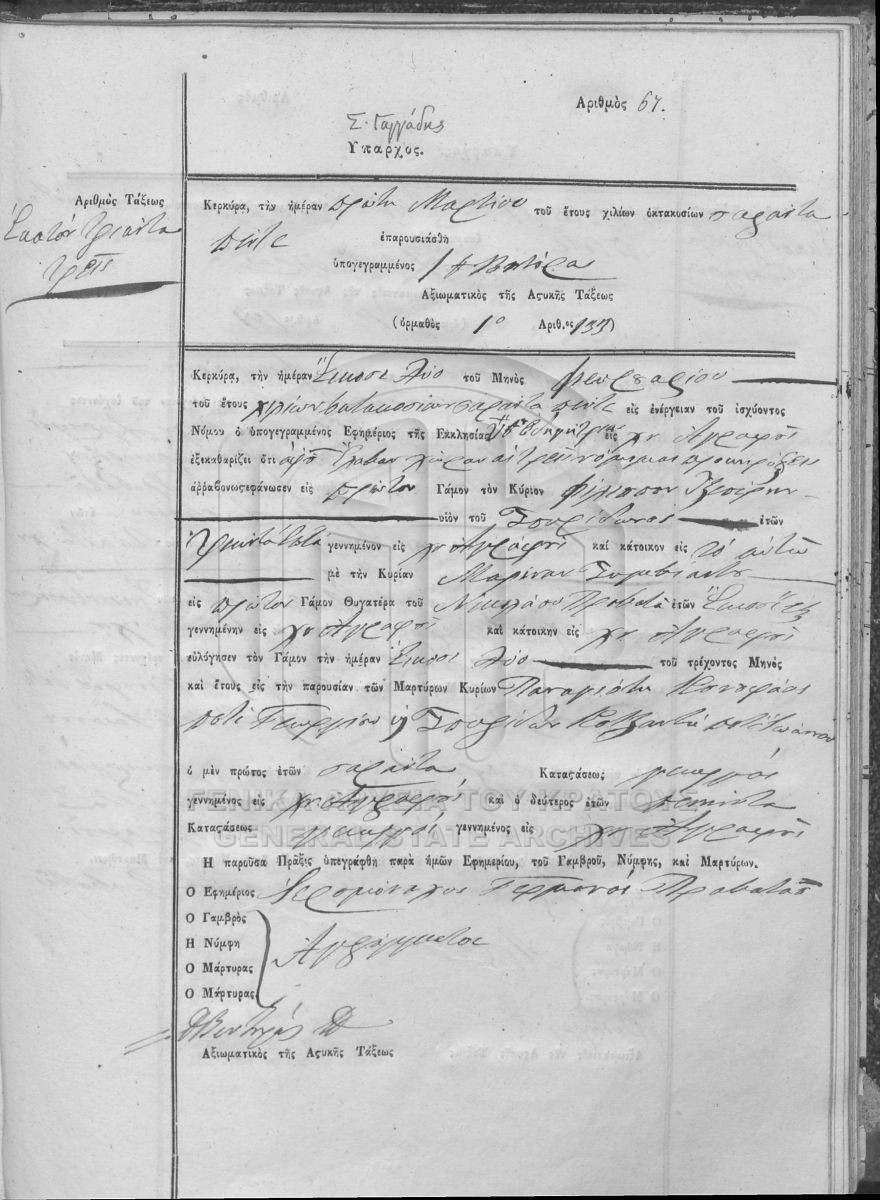 Αριθμὸς 67.
Σ. Γαγγάδης
Υπαρχος.
Αριθμὸς Τάξεως
Ἑκατόν τριάντα
τρεῖς
Κερκύρα, τὴν ἡμέραν πρώτη Μαρτίου τοῦ ἔτους χιλίων ὀκτακοσίων σαράντα
πέντε ἐπαρουσιάσθη
ὑπογεγραμμένος
Αξιωματικὸς τῆς Αςυκῆς Τάξεως
(ὁρμαθὸς 1ο Αριθ.ος 133)
Κερκύρα, τὴν ἡμέραν Εἴκοσι δύο τοῦ Μηνὸς Φευρουαρίου
τοῦ ἔτους χιλίων οκτακοσίων σαράντα πέντε εἰς ἐνέργειαν τοῦ ἰσχύοντος
Νόμου ὁ ὑπογεγραμμένος Εφημέριος τῆς Εκκλησίας εἰς Αγραφοί
ἐξεκαθαρίζει ὅτι αφοῦ έλαβαν χώραν αι τρεις νόμιμαι προκηρύξεις
ἀρραβωνοςεφάνωσεν εἰς πρώτον Γάμον τὸν Κύριον Φίλιππον
υἱὸν τοῦ Σπυρίδωνος ἐτῶν
γεννημένον εἰς Αγραφοί καὶ κάτοικον εἰς το αυτώ
μὲ τὴν Κυρίαν Μαρίναν
εἰς πρώτον Γάμον Θυγατέρα τοῦ Νικολάου Προβατά ἐτῶν
γεννημένην εἰς χν Αγραφοί καὶ κάτοικην εἰς χν Αγραφοί
εὐλόγησεν τὸν Γάμον τὴν ἡμέραν Εἴκοσι δύο τοῦ τρέχοντος Μηνὸς
καὶ ἔτους εἰς τὴν παρουσίαν τῶν Μαρτύρων Κυρίων Παναγιώτη
ποτέ Γεωργίου ή Σπυρίδων ποτέ Ιωάννου
ὁ μὲν πρῶτος ἐτῶν σαράντα Καταςάσεως γεωργός
γεννημένος εἰς χν Αγραφοί καὶ ὁ δεύτερος ἐτῶν πενήντα
Καταςάσεως γεωργός γεννημένος εἰς χν Αγραφοί
Η παροῦσα Πρᾶξις ὑπεγράφθη παρὰ ἡμῶν Εφημερίου, τοῦ Γαμβροῦ, Νύμφης, καὶ Μαρτύρων.
Ο Εφημέριος Ιερομόναχος Γερμανός Προβατάς
Ο Γαμβρὸς
Η Νύμφη
Αγράμματοι
Ο Μάρτυρας
Ο Μάρτυρας
Αξιωματικὸς τῆς Αςυκῆς Τάξεως
ΓΕΝΙΚΑ ΑΡΧΕΙΑ ΤΟΥ ΚΡΑΤΟΥΣ
GENERAL STATE ARCHIVES